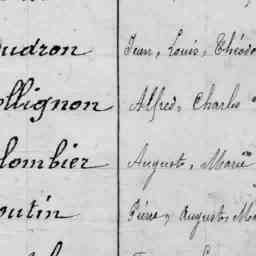 udron Jean, Louis, Théodo
llignon Alfred, Charles
lombier Auguste, Marie
outin Pierre, Auguste, Ma